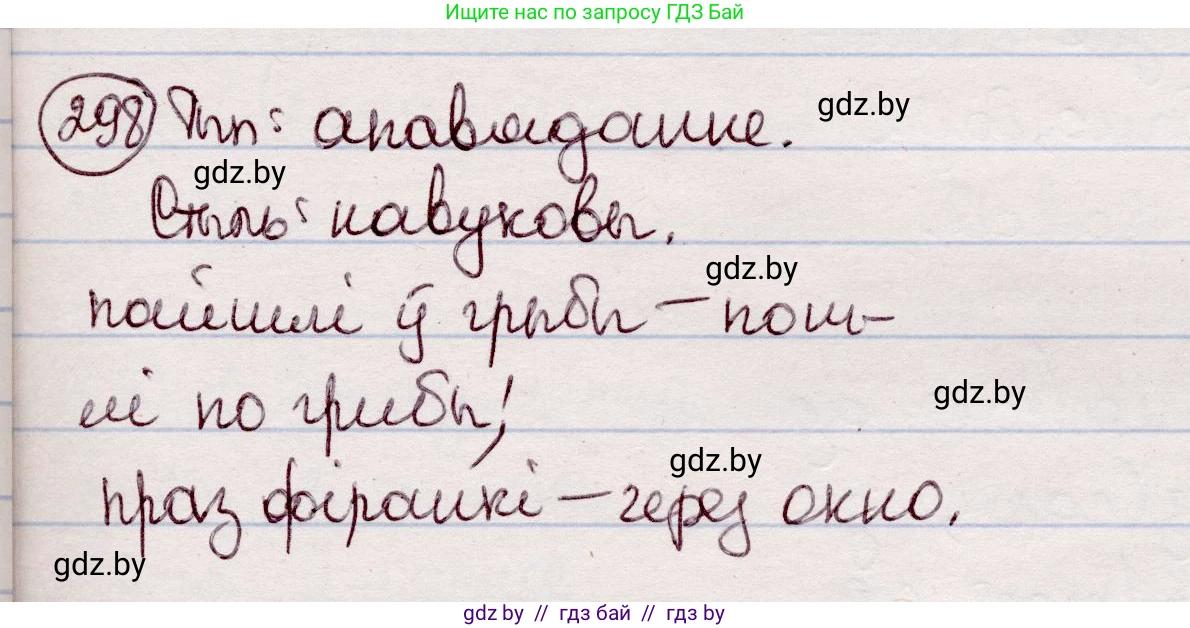 Ищите нас по запросу ГДЗ Бай
298 Тып: апавяданне. gdz.by
gdz.by
Стыль: навуковы.
gdz.by
пайшлі ў грыбы – пош-
лі по грибы; gdz.by
gdz.by
праз фіранкі – через окно.
gdz.by
gdz by // гдз бай // гдз by